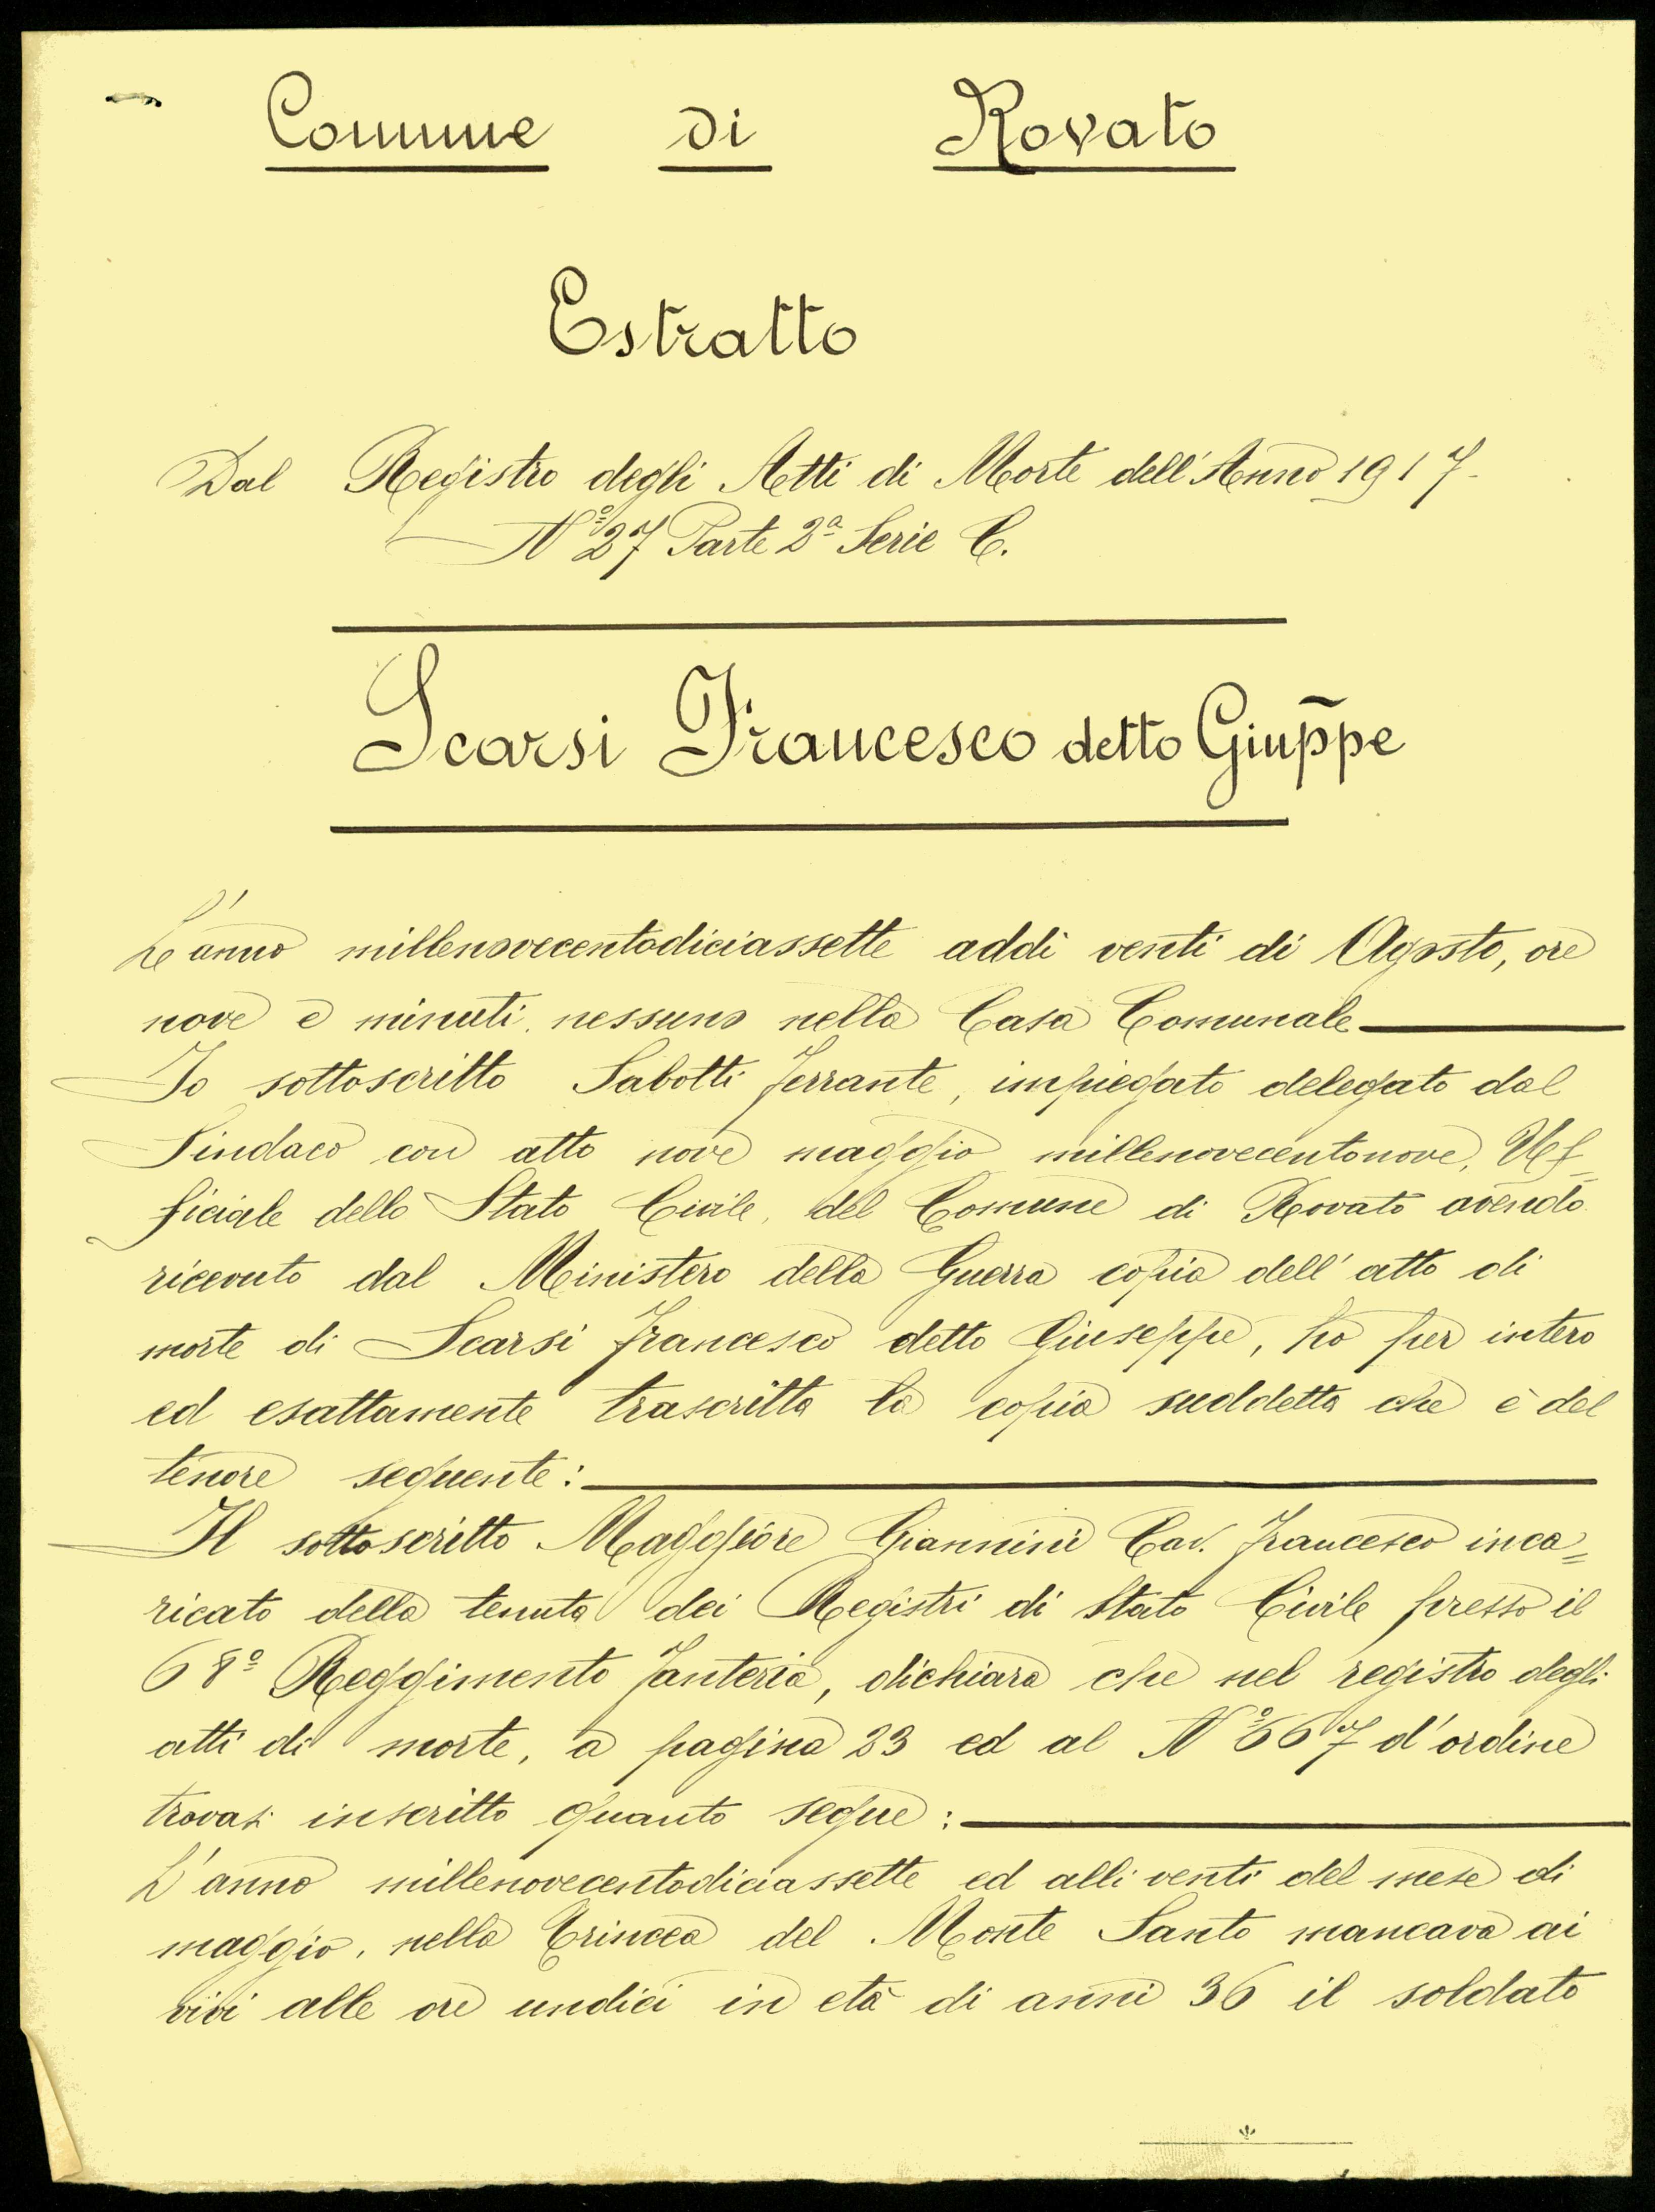 Comune di Rovato
Estratto
Dal Registro degli Atti di Morte dell'Anno 1917-
Nº 27 Parte 2ª Serie C.
Scarsi Francesco detto Giup̄pe
L'anno millenovecentodiciassette addì venti di Agosto, ore
nove e minuti nessuno nella Casa Comunale
Io sottoscritto Sabotti Ferrante, impiegato delegato dal
Sindaco con atto nove maggio millenovecentonove, Uf-
ficiale dello Stato Civile, del Comune di Rovato avendo
ricevuto dal Ministero della Guerra copia dell'atto di
morte di Scarsi Francesco detto Giuseppe, ho per intero
ed esattamente trascritta la copia suddetta che è del
tenore seguente:
Il sottoscritto Maggiore Giannini Cav. Francesco inca=
ricato della tenuta dei Registri di Stato Civile presso il
68º Reggimento Fanteria, dichiara che nel registro degli
atti di morte, a pagina 23 ed al Nº 667 d'ordine
trovasi inscritto quanto segue:
L'anno millenovecentodiciassette ed alli venti del mese di
maggio, nella Trincea del Monte Santo mancava ai
vivi alle ore undici in età di anni 36 il soldato